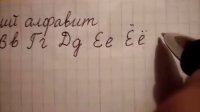 ий алфавит
Вв Гг Дд Ее Ёё